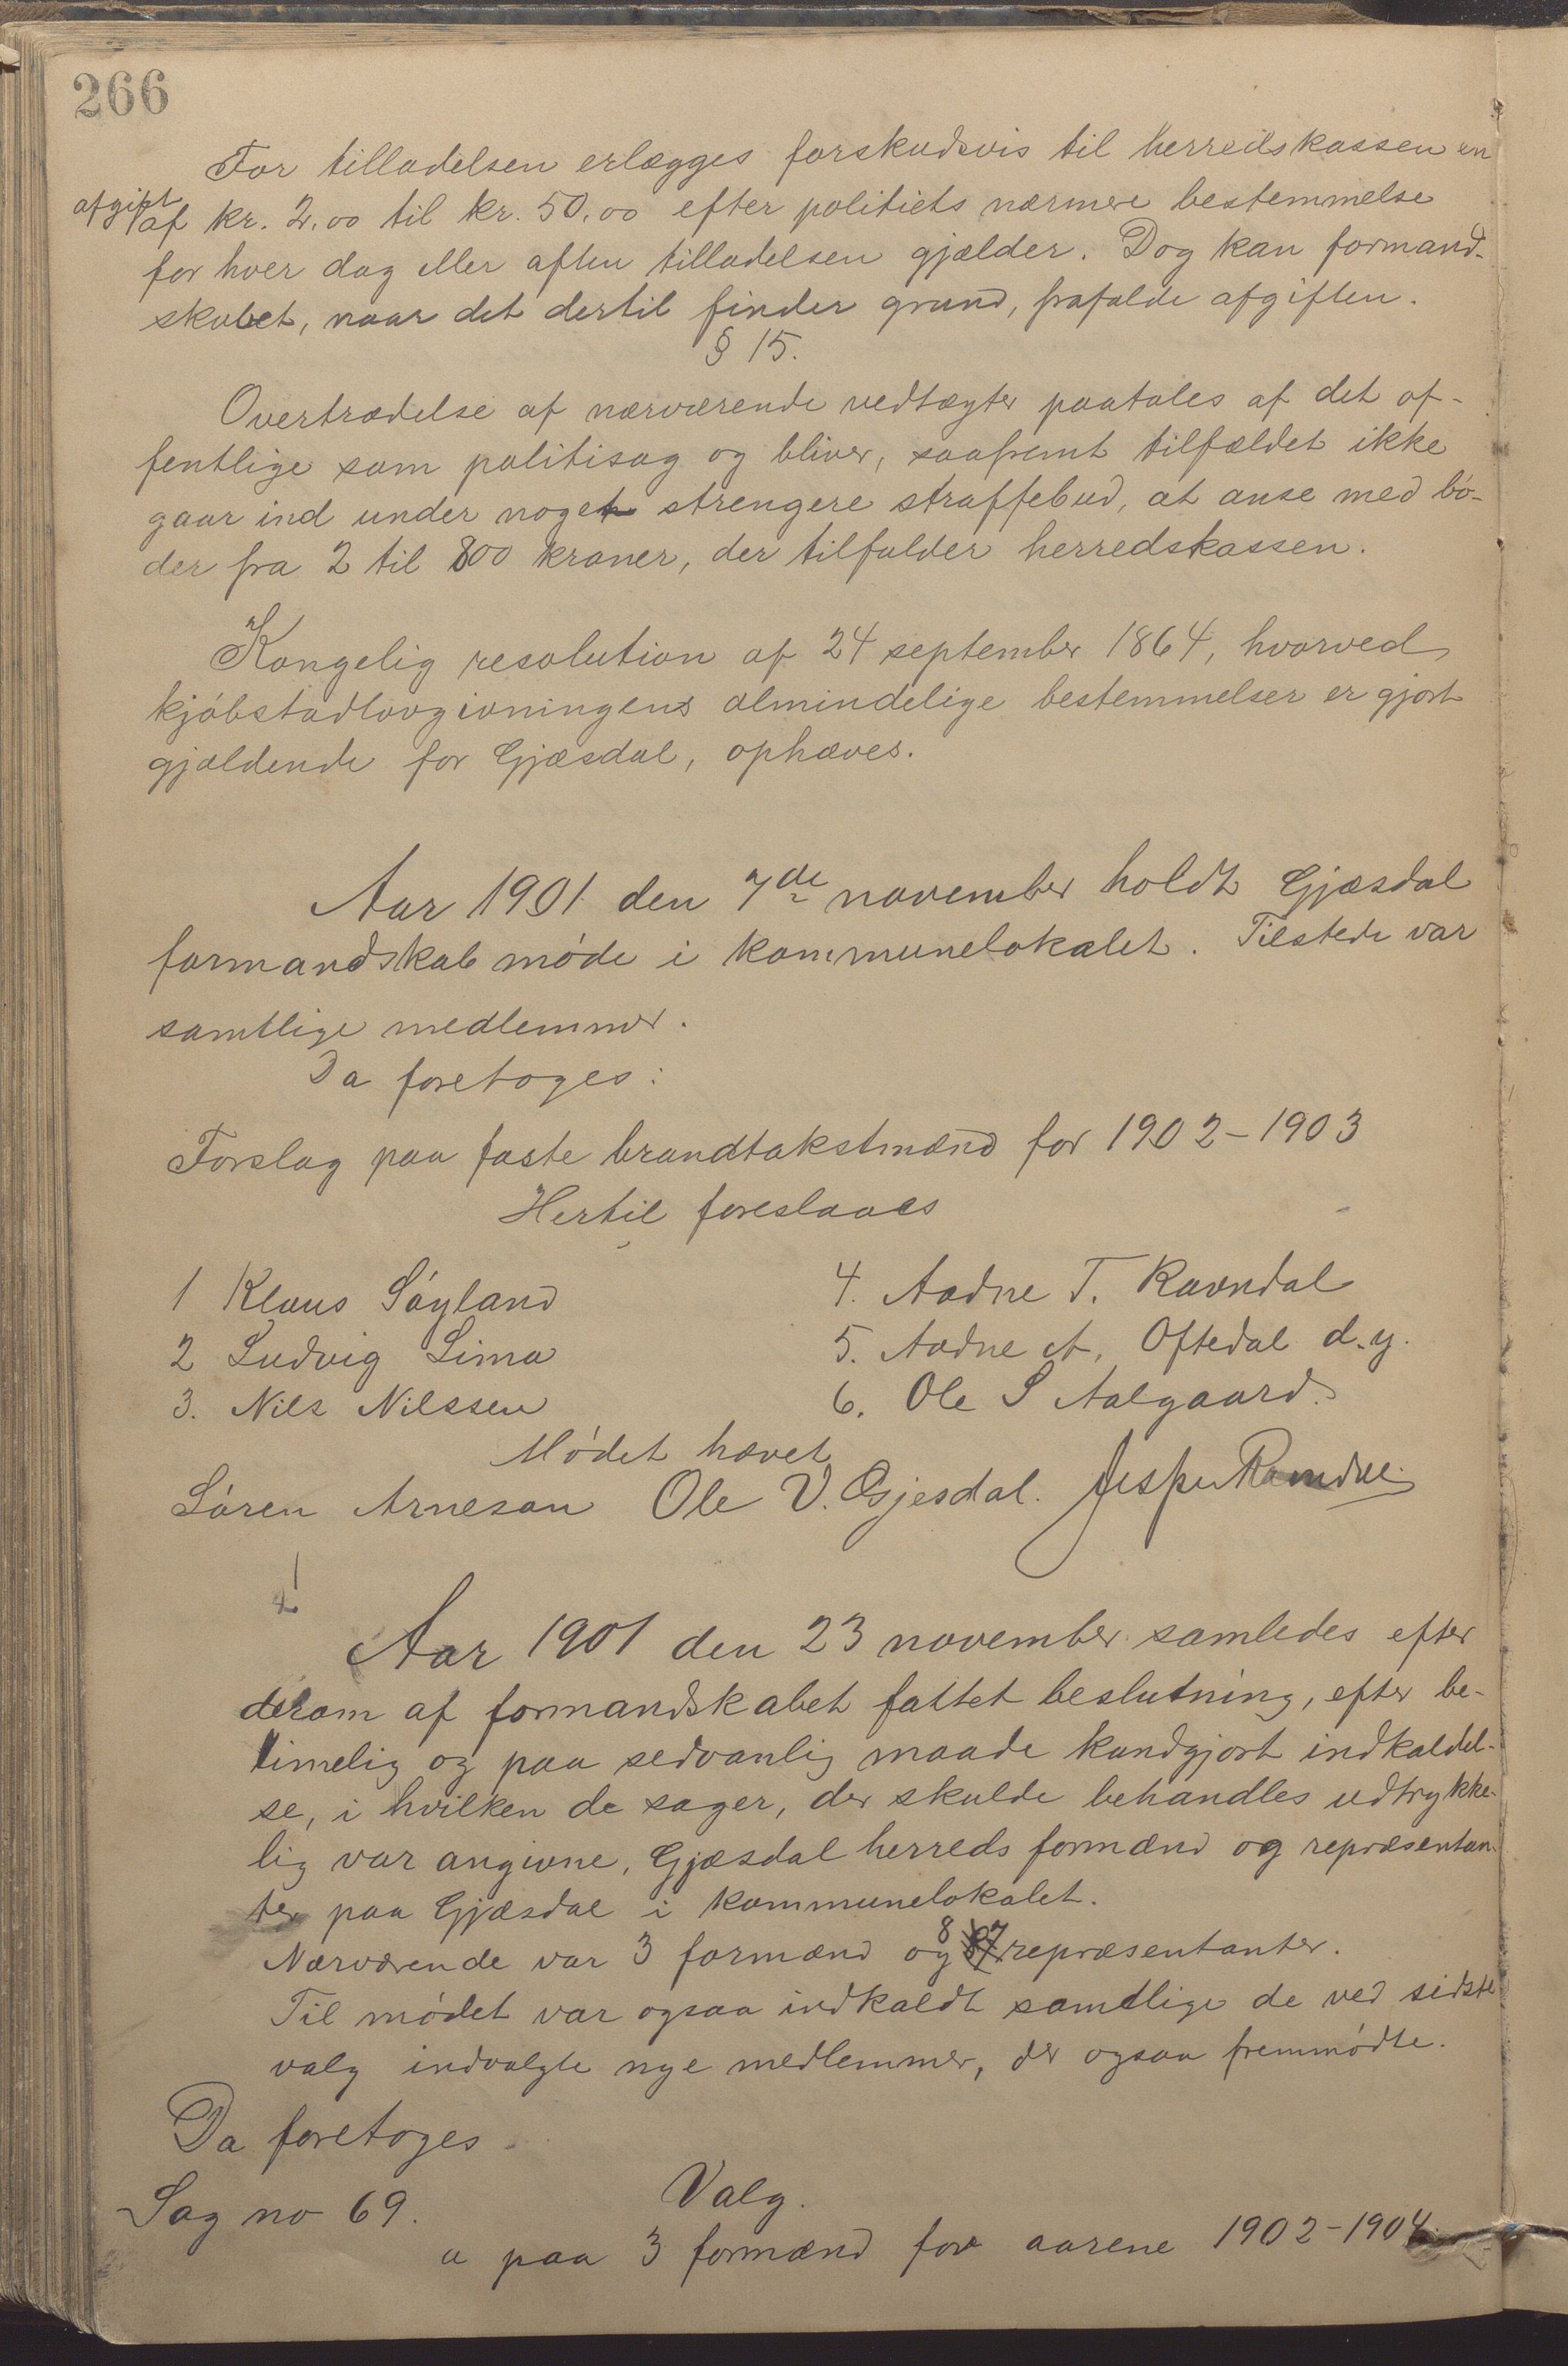 266
For tilladelsen erlægges forskudsvis til herredskassen en
afgift af kr. 2.00 til kr. 50.00 efter politiets nærmere bestemmelse
for hver dag eller aften tilladelsen gjælder. Dog kan formand-
skabet, naar det dertil finder grund, frafalde afgiften.
§ 15.
Overtrædelse af nærværende vedtægter paatales af det of-
fentlige som politisag og bliver, saafremt tilfældet ikke
gaar ind under noget strengere straffebud, at anse med bö-
der fra 2 til 800 kroner, der tilfalder herredskassen.
Kongelig resolution af 24 september 1864, hvorved
kjöbstadlovgivningens almindelige bestemmelser er gjort
gjældende for Gjæsdal, ophæves.
Aar 1901 den 7de november holdt Gjæsdal
formandskab möde i kommunelokalet. Tilstede var
samtlige medlemmer.
Da foretoges:
Forslag paa faste brandtakstmænd for 1902-1903
Hertil foreslaaes
1 Klaus Söyland
2 Ludvig Lima
3. Nils Nilssen
4. Aadne T. Ravndal
5. Aadne A. Oftedal d.y.
6. Ole S Aalgaard.
Mödet hævet
Sören Arneson Ole V. Gjesdal. Jesper
Aar 1901 den 23 november samledes efter
derom af formandskabet fattet beslutning, efter be-
timelig og paa sedvanlig maade kundgjort indkaldel-
se, i hvilken de sager, der skulde behandles udtrykke-
lig var angivne, Gjæsdal herreds formænd og repræsentan-
ter paa Gjæsdal i kommunelokalet.
Nærværende var 3 formænd og 8 repræsentanter.
Til mödet var ogsaa indkaldt samtlige de ved sidste
valg indvalgte nye medlemmer, der ogsaa fremmödte.
Da foretoges
Sag no 69. Valg.
a paa 3 formænd for aarene 1902-1904.